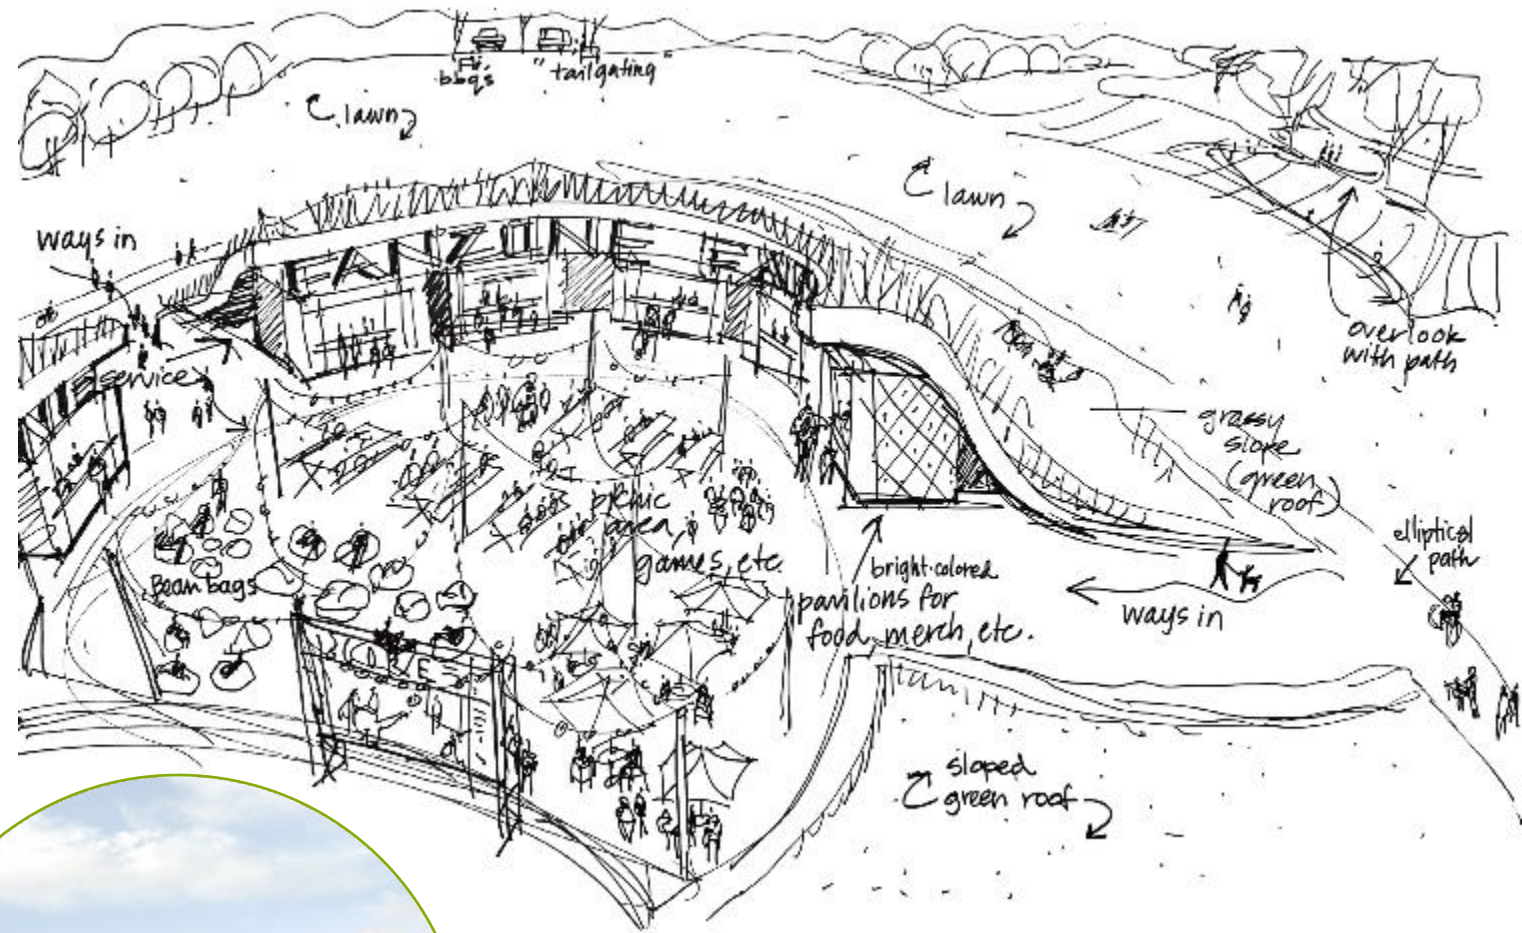 bbqs
"tailgating"
lawn
lawn
ways in
FANZONE
service
overlook
with path
grassy
slope
(green
roof)
picnic
area,
games, etc.
Bean bags
bright-colored
pavilions for
food, merch, etc.
elliptical
path
ways in
sloped
green roof